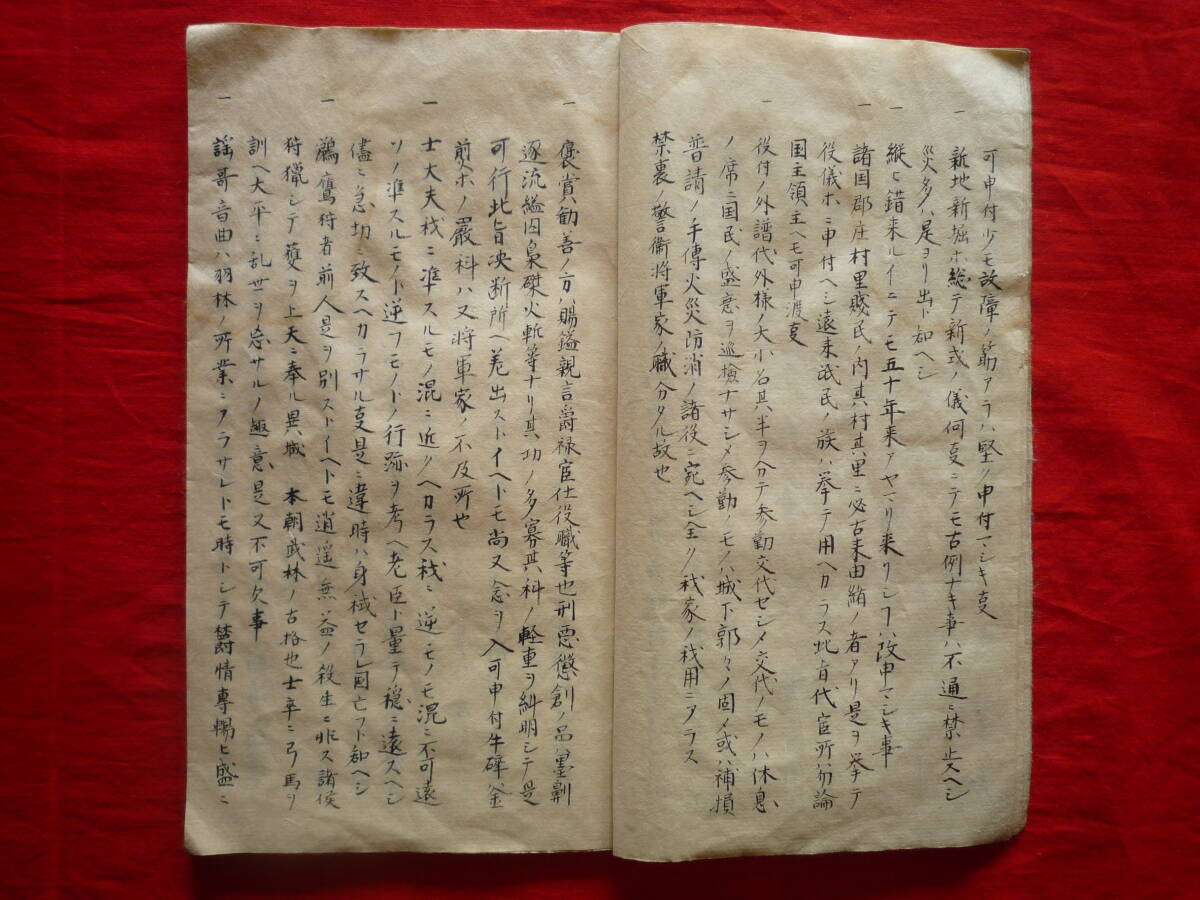 可申付少モ故障ノ筋アラハ堅ク申付マシキ叓
一 新地新堀ホ総テ新式ノ儀何叓ニテモ古例ナキ事ハ不通ニ禁止スヘシ
災多ハ是ヨリ出ト知ヘシ
一 縦ヒ錯来ルイニテモ五十年来アヤマリ来リシヲハ改申マシキ事
一 諸国郡庄村里賤民ノ内其村其里ニ必古来由緒ノ者アリ是ヲ挙テ
役儀ホニ申付ヘシ遠来氓民ノ族ハ挙テ用ヘカラス此旨代官所勿論
国主領主ヘモ可申渡叓
一 役付ノ外譜代外様ノ大小名其半ヲ分テ参勤交代セシメ交代ノモノハ休息
ノ席ニ国民ノ盛意ヲ巡検ナサシメ参勤ノモノハ城下郭々ノ固メ或ハ補損
普請ノ手傳火災防消ノ諸役ニ宛ヘシ全ク我家ノ我用ニアラス
禁裏ノ警衞将軍家ノ職分タル故也
一 褒賞勧善ノ方ハ賜鎰親言爵禄官仕役職等也刑悪懲創ノ品ハ墨劓
逐流縊囚梟磔火斬等ナリ其功ノ多寡其科ノ軽重ヲ糾明シテ是
可行此旨决断所ヘ差出ストイヘトモ尚又念ヲ入可申付牛磔釜
煎ホノ嚴科ハ又将軍家ノ不及所也
一 士大夫我ニ准スルモノ混ニ近クヘカラス我ニ逆モノモ混ニ不可遠
ソノ准スルモノト逆フモノトノ行跡ヲ考ヘ老臣ト量テ穏ニ遠スヘシ
儘ニ急切ニ致スヘカラサル叓是ニ違時ハ身械セラレ国亡フト知ヘシ
一 鷹狩者前人是ヲ別ストイヘトモ逍遥無益ノ殺生ニ非ス諸侯
狩猟シテ獲ヲ上天ニ奉ル異域 本朝武林ノ古格也士卒ニ弓馬ヲ
訓ヘ大平ニ乱世ヲ忘サルノ趣意是又不可欠事
一 謡哥音曲ハ羽林ノ所業ニアラサレトモ時トシテ欝情専惕ヒ盛ニ